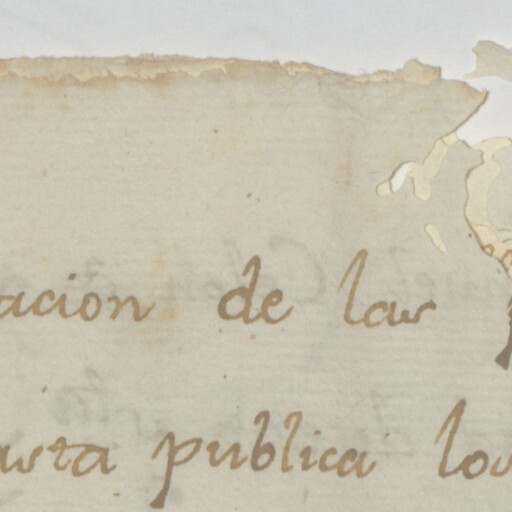 acion de las
asta publica los